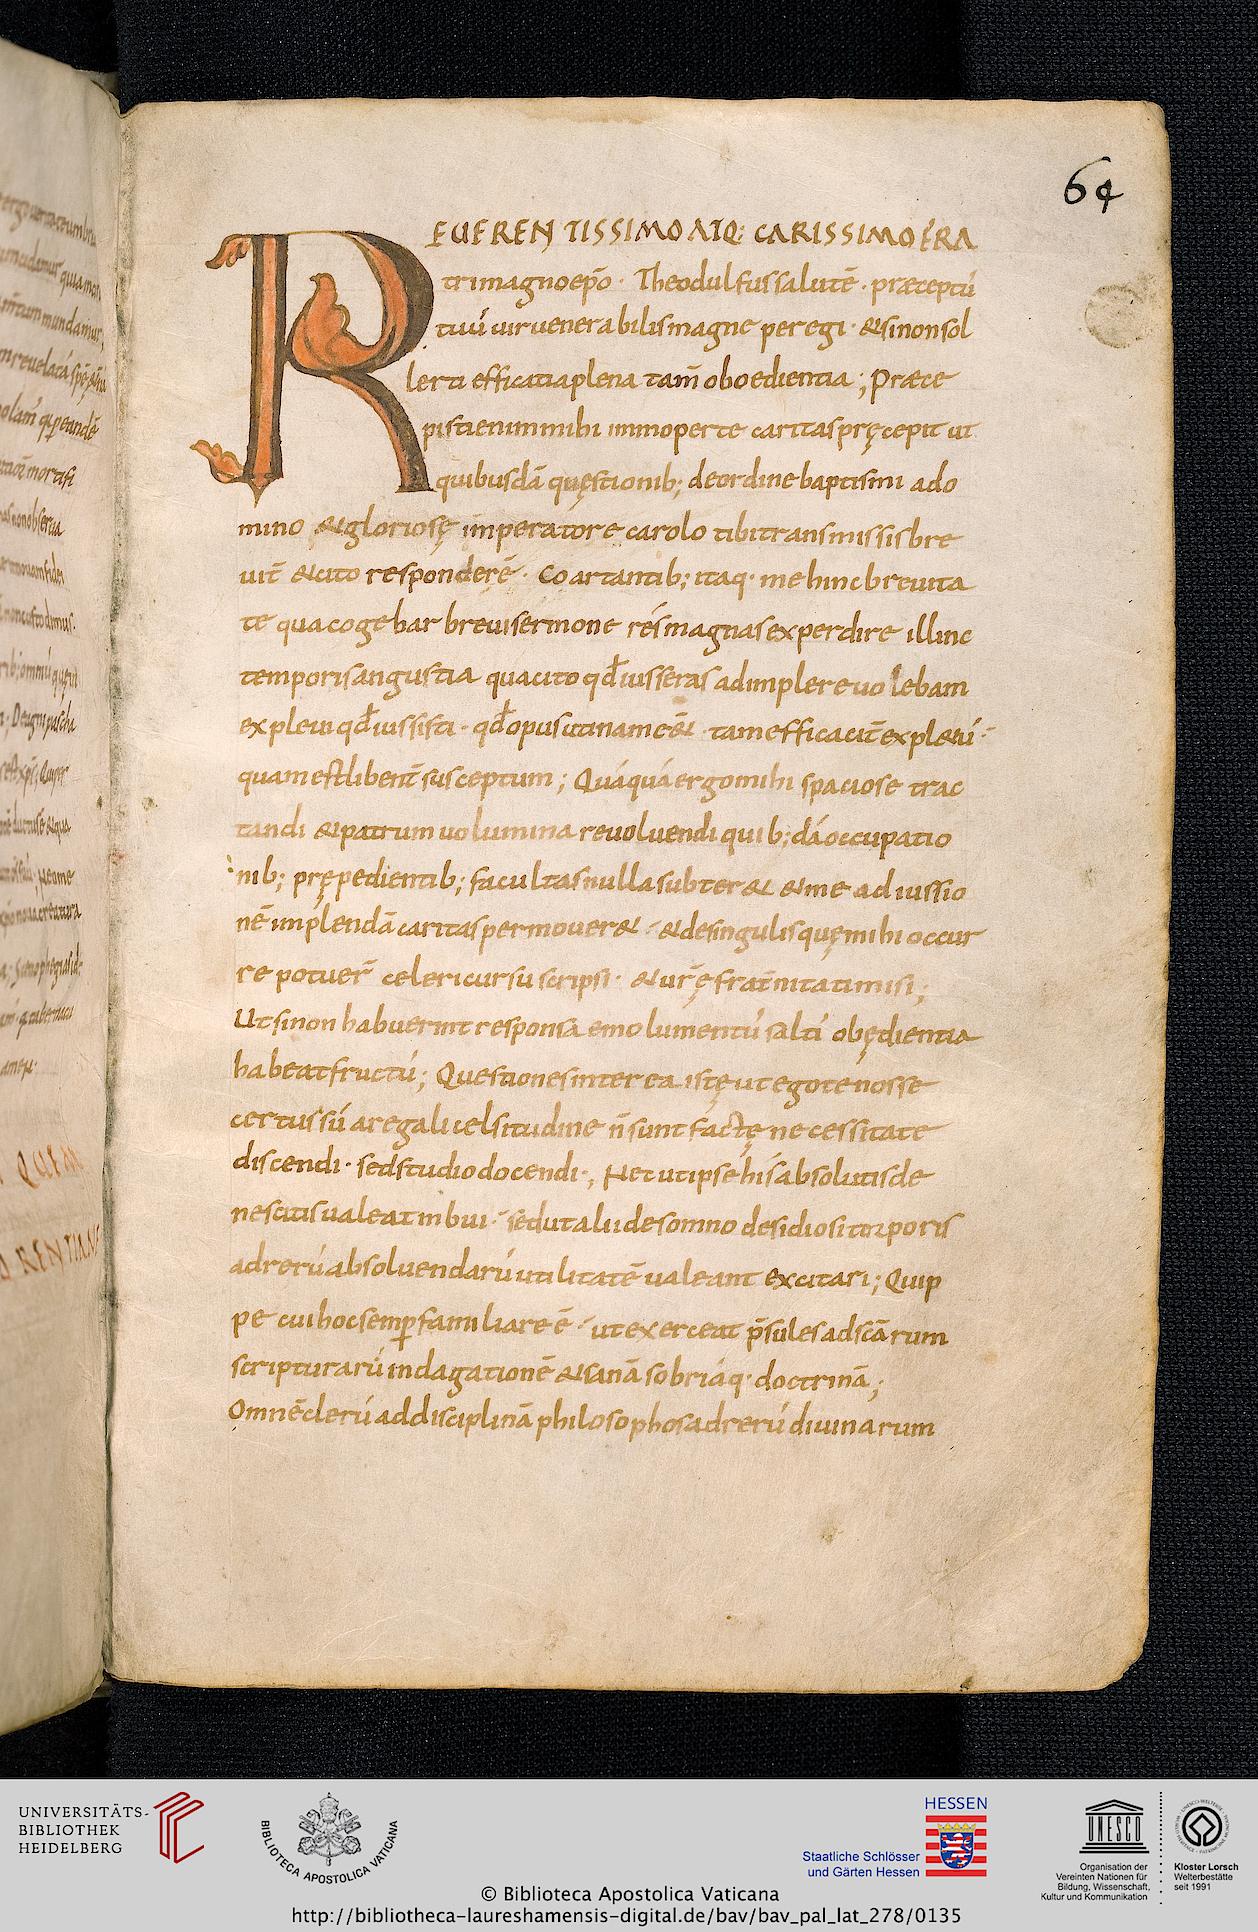 64
REUERENTISSIMO ATQ: CARISSIMO FRA
tri magno epō · Theodulfus salutē · præceptū
tuū uir uenerabilis magne peregi · & si non sol
lerti efficatia plena tam̄ oboedientia ; Præce
pisti enim mihi immo per te caritas pręcepit ut
quibusdā quęstionib; de ordine baptismi a do
mino & gloriosę imperatore carolo tibi transmissis bre
uit̄ & cito responderē · Coartantib; itaq· me hinc breuita
te qua cogebar breui sermone rés magnas expedire illinc
temporis angustia qua cito qđ iusseras adimplere uolebam
expleui qđ iussisti · qđ opus utinam eē& tam efficacit̄ expletū ·
quam est libent̄ susceptum ; Quáquá ergo mihi spaciose trac
tandi & patrum uolumina reuoluendi quib; dā occupatio
nib; prępedientib; facultas nulla subter& & me ad iussio
nē implendā caritas permouer& · & de singulis quę mihi occur
re potuer̄ celeri cursu scripsi · & ur̄ę frat̄nitati misi ;
Ut si non habuerint responsa emolumentū salti obędientia
habeat fructū ; Questiones interea istę ut ego te nosse
certus sū a regali celsitudine n̄ sunt factę necessitate
discendi · sed studio docendi ·, Nec ut ipse his absolutis de
nescitis ualeat inbui · sed ut alii de somno desidiosi torporis
ad rerū absoluendarū utilitatē ualeant excitari ; Quip
pe cui hoc semp familiare ē · ut exerceat p̄sules ad scārum
scripturarū indagationē & sanā sobriáq· doctrinā ;
Omnē clerū ad disciplinā philosophos ad rerū diuinarum
UNIVERSITÄTS-
BIBLIOTHEK
HEIDELBERG
BIBLIOTECA APOSTOLICA VATICANA
HESSEN
Staatliche Schlösser
und Gärten Hessen
UNESCO
Organisation der
Vereinten Nationen für
Bildung, Wissenschaft,
Kultur und Kommunikation
Kloster Lorsch
Welterbestätte
seit 1991
© Biblioteca Apostolica Vaticana
http://bibliotheca-laureshamensis-digital.de/bav/bav_pal_lat_278/0135